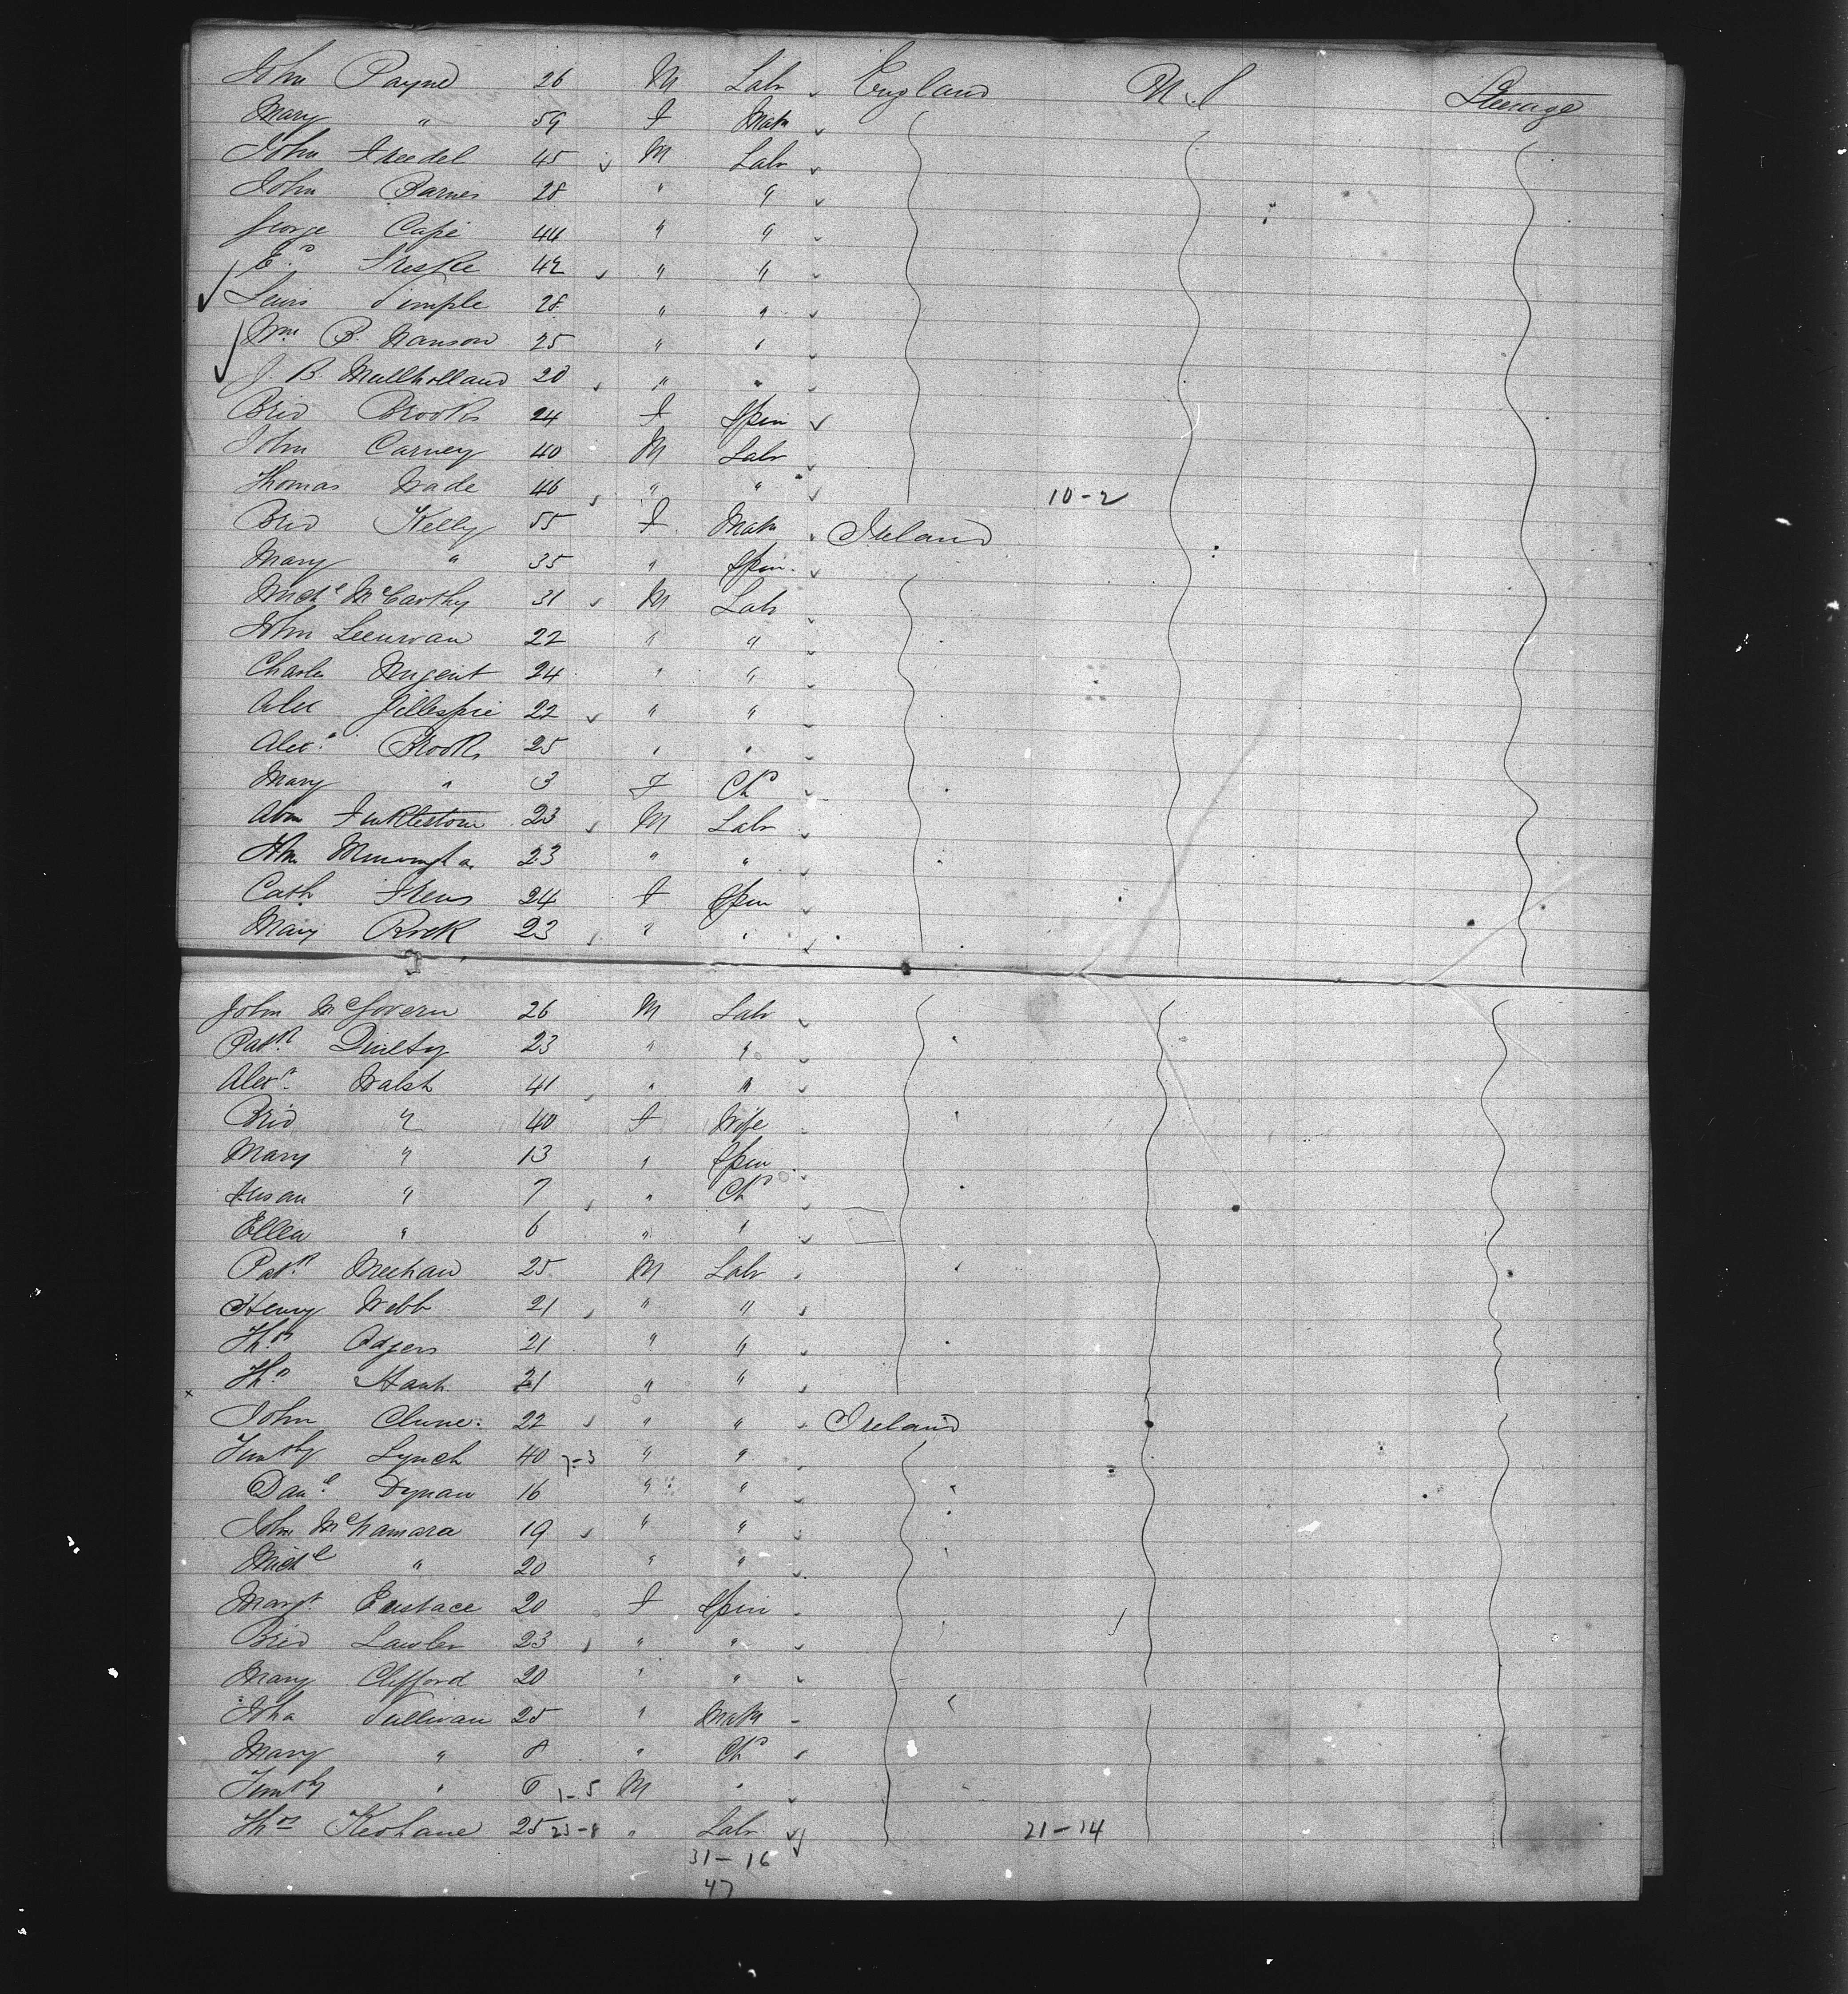 John Payne 26 M Labr England U.S Steerage
Mary " 59 F Matn
John 45 M Labr
John Barnes 28 " "
George Cape 44 " "
42 " "
Lewis Temple 28 " "
Wm B. Hanson 25 " "
J. B. Mullholland 20 " "
Brid Brooks 24 F Spin
John Carney 40 M Labr
Thomas Wade 46 " " 10-2
Brid Kelly 55 F Matn Ireland
Mary " 35 " Spin
Michl McCarthy 31 M Labr
John 22 " "
Charles Nugent 24 " "
Alex Gillespie 22 " "
Alexr Brooks 25 " "
Mary " 3 F Chd
Abm 23 M Labr
23 " "
Cath 24 F Spin
Mary Rock 23 " "
John McGovern 26 M Labr
Patk Quilty 23 " "
Alexr Walsh 41 " "
Brid " 40 F Wife
Mary " 13 " Spin
Susan " 7 " Chd
Ellen " 6 " "
Patk Meehan 25 M Labr
Henry Webb 21 " "
Ths Odgers 21 " "
Ths 21 " "
John Clune 22 " " Ireland
Timthy Lynch 40 7-3 " "
Danl Dynan 16 " "
John McNamara 19 " "
Michl " 20 " "
Margt Eustace 20 F Spin
Brid Lawler 23 " "
Mary Clifford 20 " "
Joha Sullivan 25 " Matn
Mary " 8 " Chd
Timthy " 6 1-5 M "
Ths Keohane 25 23-8 " Labr 21-14
31-16
47